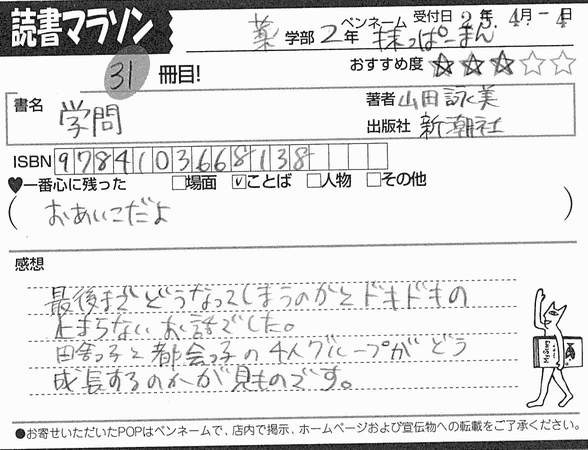 読書マラソン
薬 学部 2年 ペンネーム 抹っぱーまん 受付日 25年 4月-4日
31 冊目! おすすめ度 ★★★☆☆
書名 学問 著者 山田詠美
出版社 新潮社
ISBN 9784103668138
♥一番心に残った □場面 ☑ことば □人物 □その他
(おあいこだよ)
感想
最後までどうなってしまうのかとドキドキの
止まらないお話でした。
田舎っ子と都会っ子の4人グループがどう
成長するのかが見ものです。
●お寄せいただいたPOPはペンネームで、店内で掲示、ホームページおよび宣伝物への転載をご了承ください。